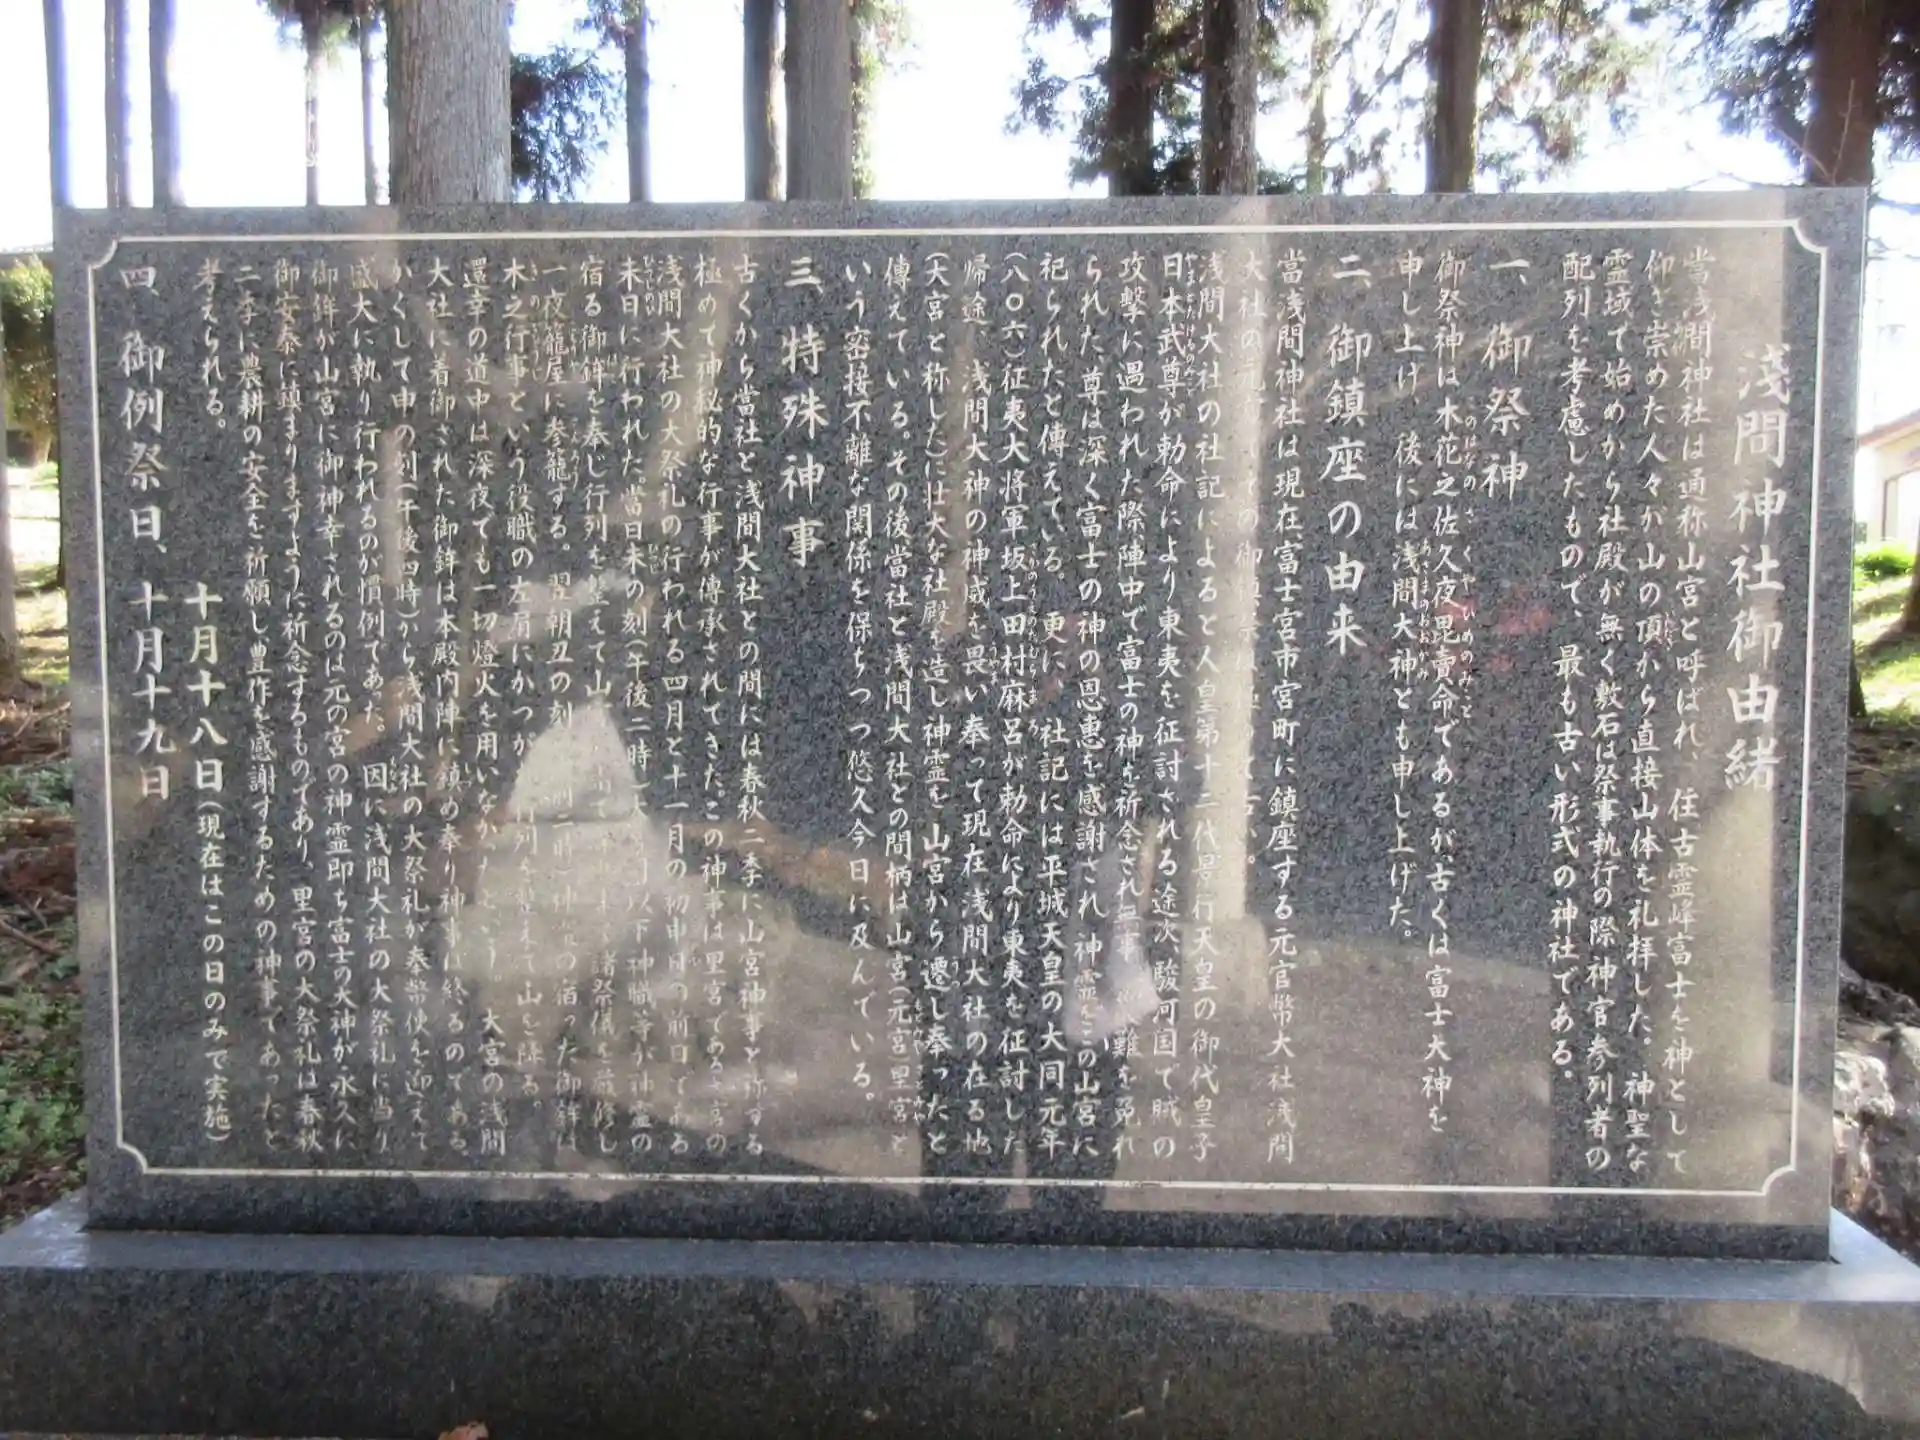 淺間神社御由緒
當淺間神社は通称山宮と呼ばれ、住古霊峰富士を神として
仰ぎ崇めた人々が山の頂から直接山体を礼拝した。神聖な
霊域で始めから社殿が無く敷石は祭事執行の際神官参列者の
配列を考慮したもので、最も古い形式の神社である。
一、御祭神
御祭神は木花之佐久夜毘賣命であるが、古くは富士大神を
申し上げ、後には浅間大神とも申し上げた。
二、御鎮座の由来
當浅間神社は現在、富士宮市宮町に鎮座する元官幣大社浅間
大社の元
浅間大社の社記によると人皇第十二代景行天皇の御代皇子
日本武尊が勅命により東夷を征討される途次、駿河国で賊の
攻撃に遇われた際陣中で富士の神を祈念され無事 難を免れ
られた、尊は深く富士の神の恩恵を感謝され、神霊をこの山宮に
祀られたと傳えている。更に、社記には平城天皇の大同元年
(八〇六)征夷大将軍坂上田村麻呂が勅命により東夷を征討した
帰途、浅間大神の神威を畏い奉って現在浅間大社の在る地
(大宮と称した)に壮大な社殿を造し神霊を山宮から遷し奉ったと
傳えている。その後當社と浅間大社との間柄は山宮(元宮)里宮と
いう密接不離な関係を保ちつつ悠久今日に及んでいる。
三、特殊神事
古くから當社と浅間大社との間には春秋二季に山宮神事と称する
極めて神秘的な行事が傳承されてきた。この神事は里宮である
浅間大社の大祭礼の行われる四月と十一月の初申日の前日である
未日に行われた。當日未の刻(午後二時)大宮 以下神職等が神霊の
宿る御鉾を奉じ行列を整えて山 諸祭儀を厳修し
一夜籠屋に参籠する。翌朝丑の刻 の宿った御鉾は
木之行事という役職の左肩にかつが 行列を整えて山を降る。
還幸の道中は深夜でも一切燈火を用いなかったという。大宮の浅間
大社に着御された御鉾は本殿内陣に鎮め奉り神事は終るのである。
かくして申の刻(午後四時)から浅間大社の大祭礼が奉幣使を迎えて
盛大に執り行われるのが慣例であった。因に浅間大社の大祭礼に当り
御鉾が山宮に御神幸されるのは元の宮の神霊即ち富士の大神が永久に
御安泰に鎮まりますように祈念するものであり、里宮の大祭礼は春秋
二季に農耕の安全を祈願し豊作を感謝するための神事であったと
考えられる。
十月十八日(現在はこの日のみで実施)
四、御例祭日、十月十九日